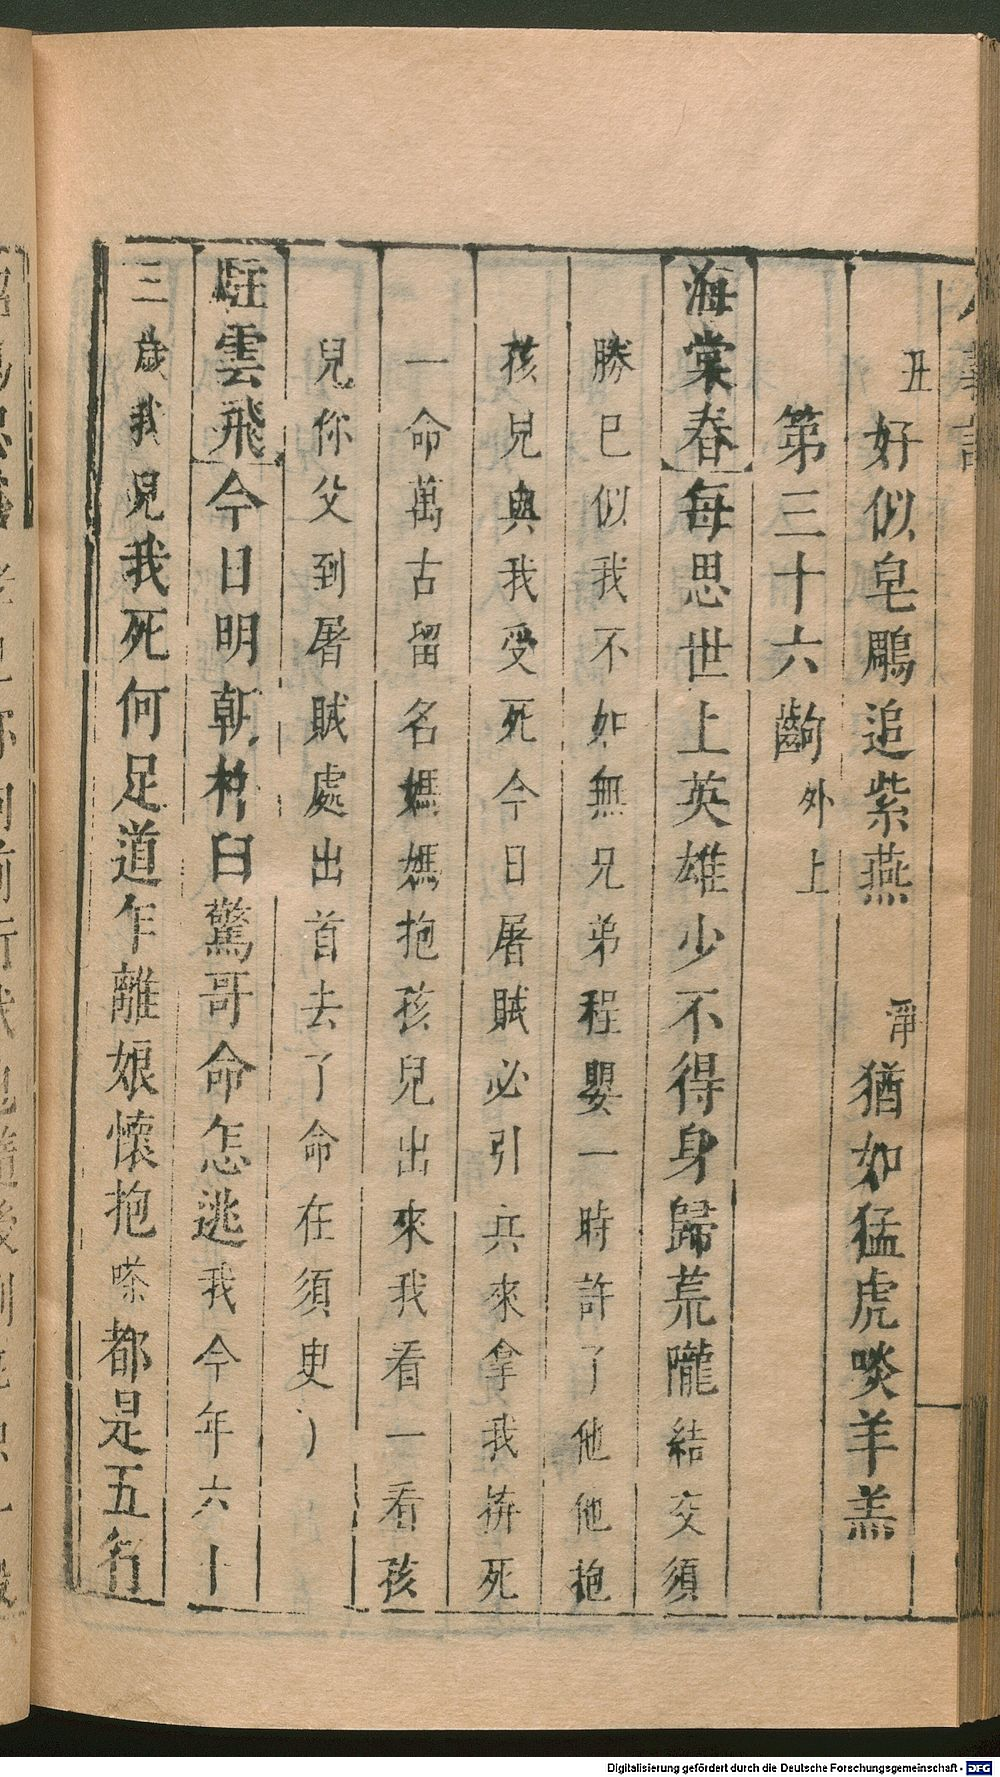 丑好似皂鵰追紫燕　淨猶如猛虎啖羊羔
第三十六齣外上
海棠春每思世上英雄少不得身歸荒隴結交須
勝已似我不如無兄弟程嬰一時許了他他抱
孩兒與我受死今日屠賊必引兵來拿我拚死
一命萬古留名媽媽抱孩兒出來我看一看孩
兒你父到屠賊處出首去了命在須臾
駐雲飛今日明朝杵臼驚哥命怎逃我今年六十
三歲我兒我死何足道乍離娘懷抱嗏都是五行
Digitalisierung gefördert durch die Deutsche Forschungsgemeinschaft - DFG